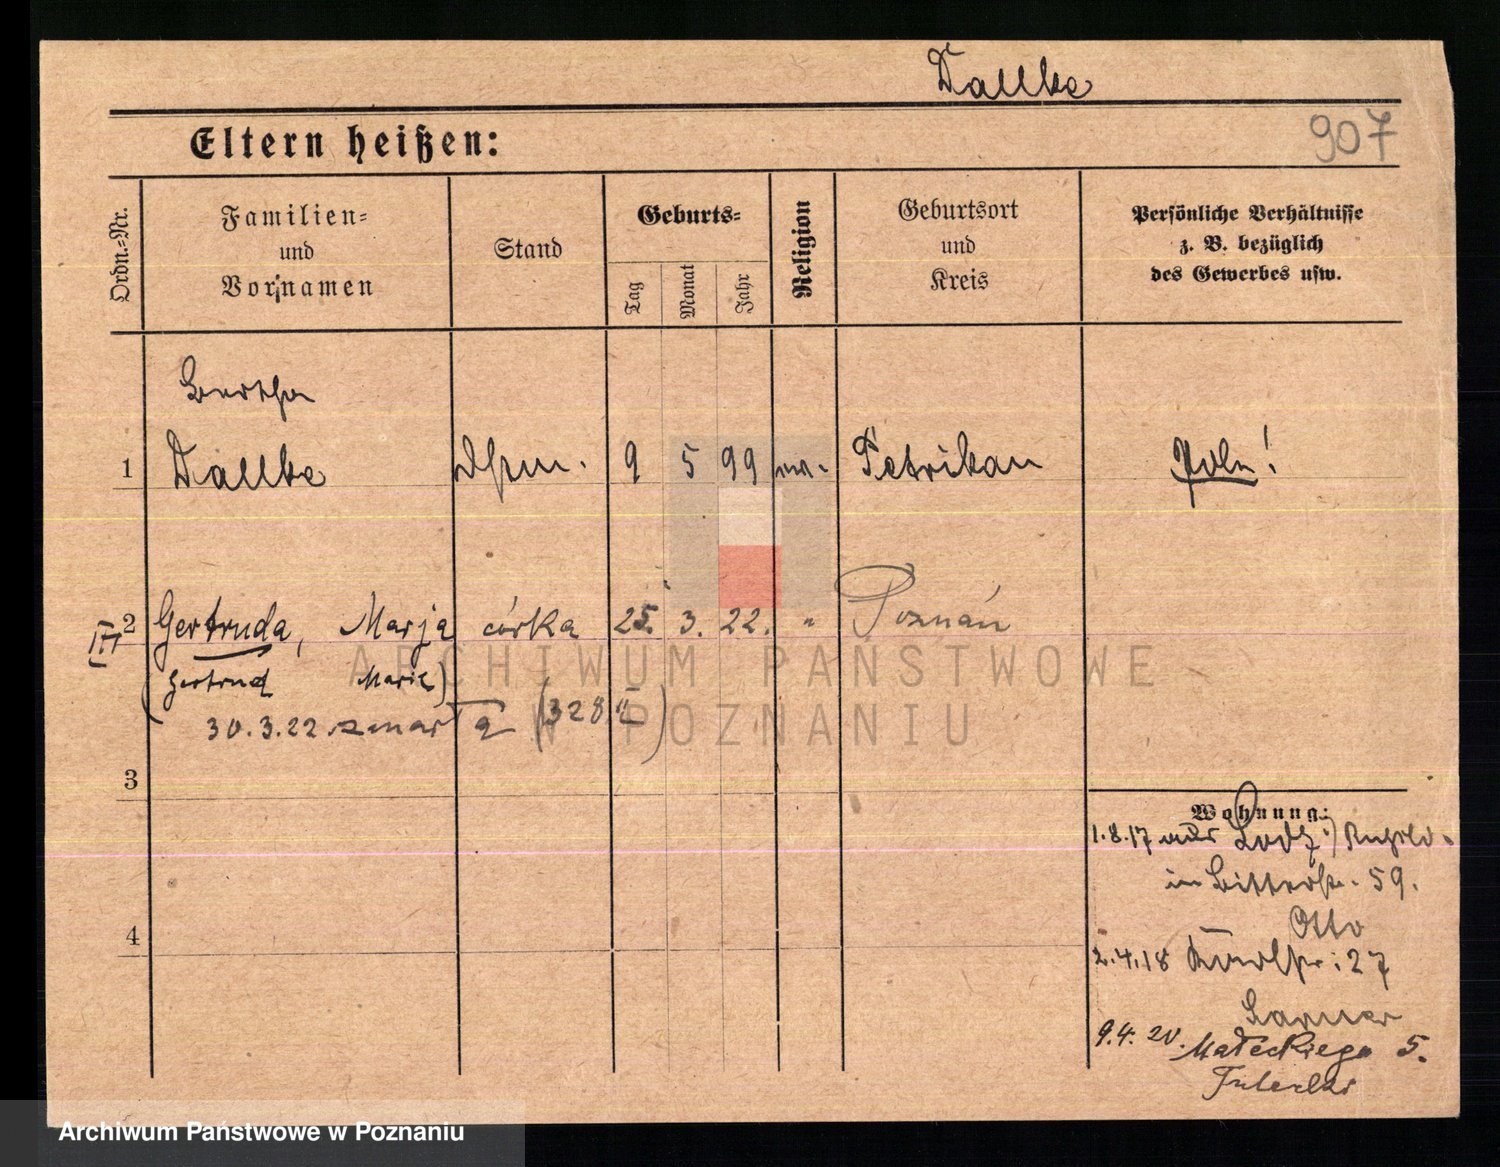 Dallke
907
Eltern heißen:
Ordn.-Nr.
Familien-
und
Vornamen
Stand
Geburts-
Tag
Monat
Jahr
Religion
Geburtsort
und
Kreis
Persönliche Verhältnisse
z. B. bezüglich
des Gewerbes usw.
Bertha
1 Dallke 9 5 99 Petrikau Poln!
III 2 Gertruda, Marja córka 25. 3. 22. " Poznań
(Gertrud Marie)
30.3.22 zmarła (328 II)
3
Wohnung:
1.8.17 aus Lodz
in Bitterstr. 59.
Otto
4
2.4.18 27
9.4.20. Małeckiego 5.
ARCHIWUM PAŃSTWOWE
W POZNANIU
Archiwum Państwowe w Poznaniu